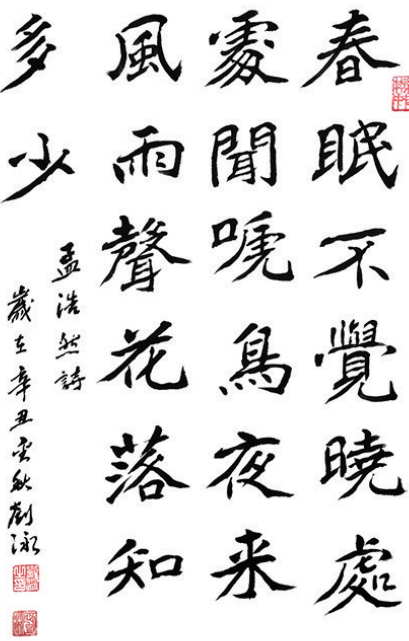 春眠不覺曉處
處聞嗁鳥夜来
風雨聲花落知
多少
孟浩然詩
歲在辛丑秋劉泳